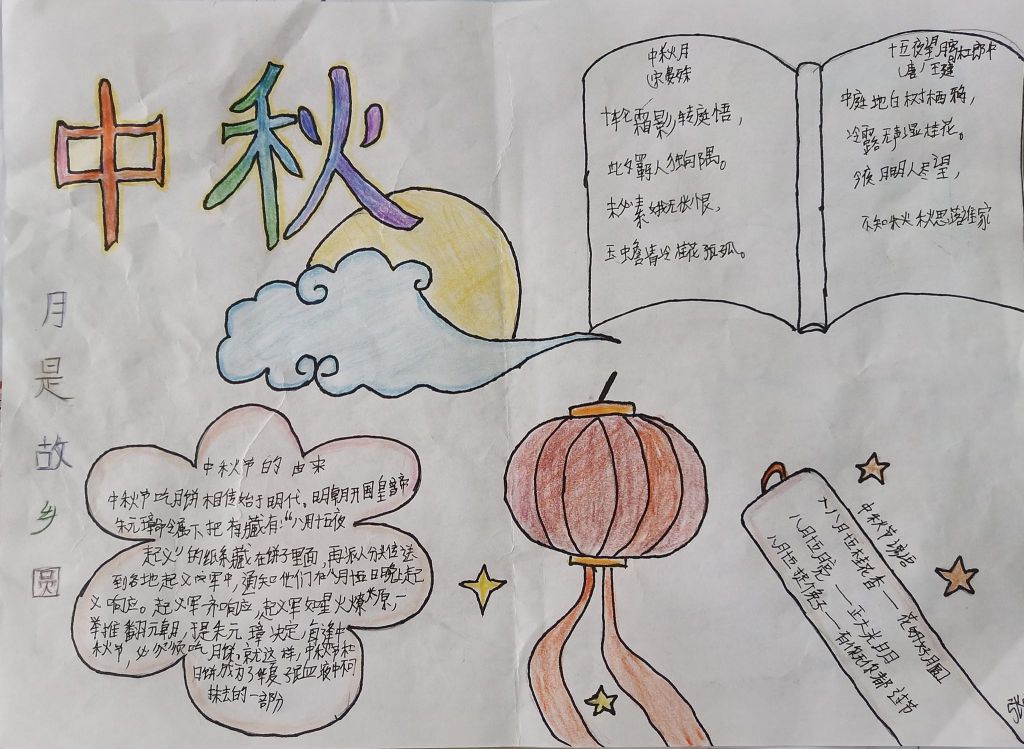 中秋
月是故乡圆
中秋月
(宋晏殊
十轮霜影转庭梧，
此夕羁人独向隅。
未必素娥无怅恨，
玉蟾清冷桂花孤。
十五夜望月寄杜郎中
(唐)王建
中庭地白树栖鸦，
冷露无声湿桂花。
今夜月明人尽望，
不知秋思落谁家
中秋节的由来
中秋节吃月饼相传始于明代。明朝开国皇帝
朱元璋命属下把有藏有："八月十五夜
起义"的纸条藏在饼子里面，再派人分头传送
到各地起义军中，通知他们在八月十五日晚上起
义响应。起义军齐响应，起义军如星火燎原，一
举推翻元朝，于是朱元璋决定，每逢中
秋节，必须吃月饼。就这样，中秋节和
月饼成为了华夏
抹去的一部分
中秋节谚语
十八月十五桂花香——花好月圆
八月十五月亮——正大光明
八月十五捉兔子——有你无你都过节